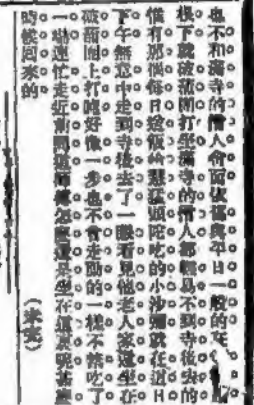 也不和滿寺的僧人會面依舊與平日一般的在
樓下破蒲團打坐滿寺的僧人都輕易不到寺後去的
惟有那個每日送飯給慧猛頭陀吃的小沙彌就在這日
下午無意中走到寺後去了一眼看見他老人家還坐在
破蒲團上打盹好像一步也不曾走動的一樣不禁吃了
一驚連忙走近前問道師傅怎麼還是坐在這裏呢甚麼
時候回來的
(未完)